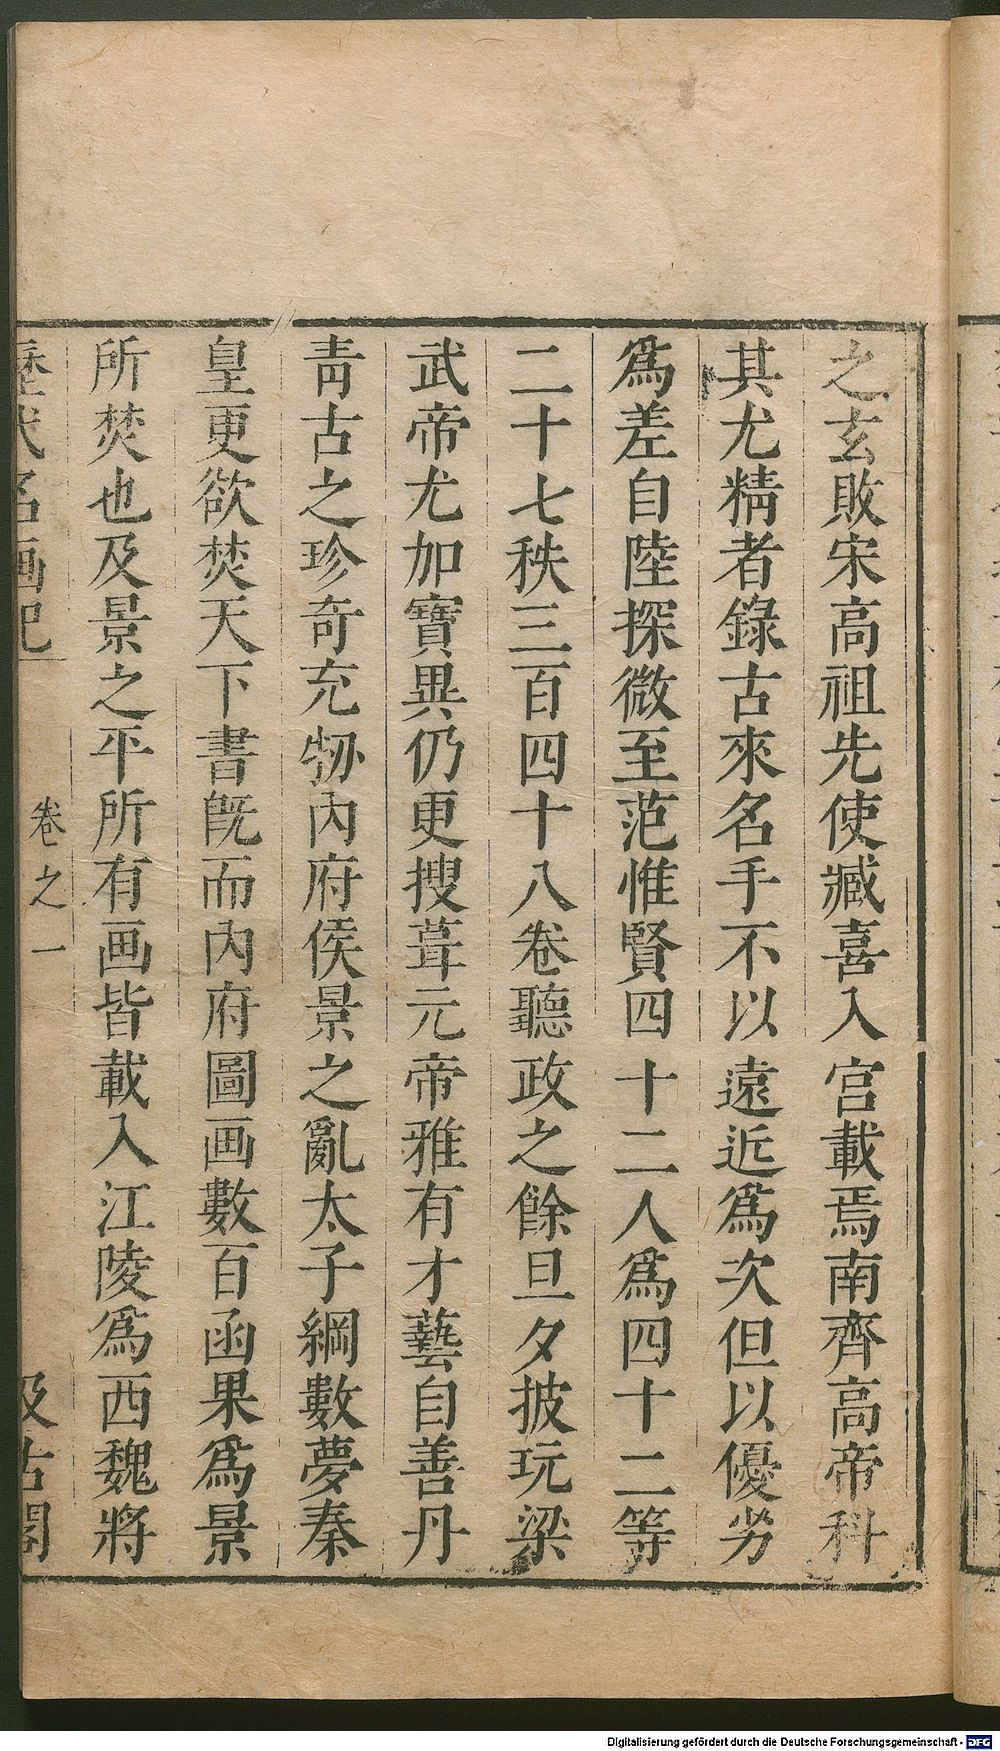 之玄敗宋高祖先使臧喜入宮載焉南齊高帝科
其尤精者錄古來名手不以遠近爲次但以優劣
爲差自陸探微至范惟賢四十二人爲四十二等
二十七秩三百四十八卷聽政之餘旦夕披玩梁
武帝尤加寶異仍更搜葺元帝雅有才藝自善丹
靑古之珍奇充牣內府侯景之亂太子綱數夢秦
皇更欲焚天下書旣而內府圖画數百函果爲景
所焚也及景之平所有画皆載入江陵爲西魏將
歷代名画記 卷之一 汲古閣
Digitalisierung gefördert durch die Deutsche Forschungsgemeinschaft - DFG